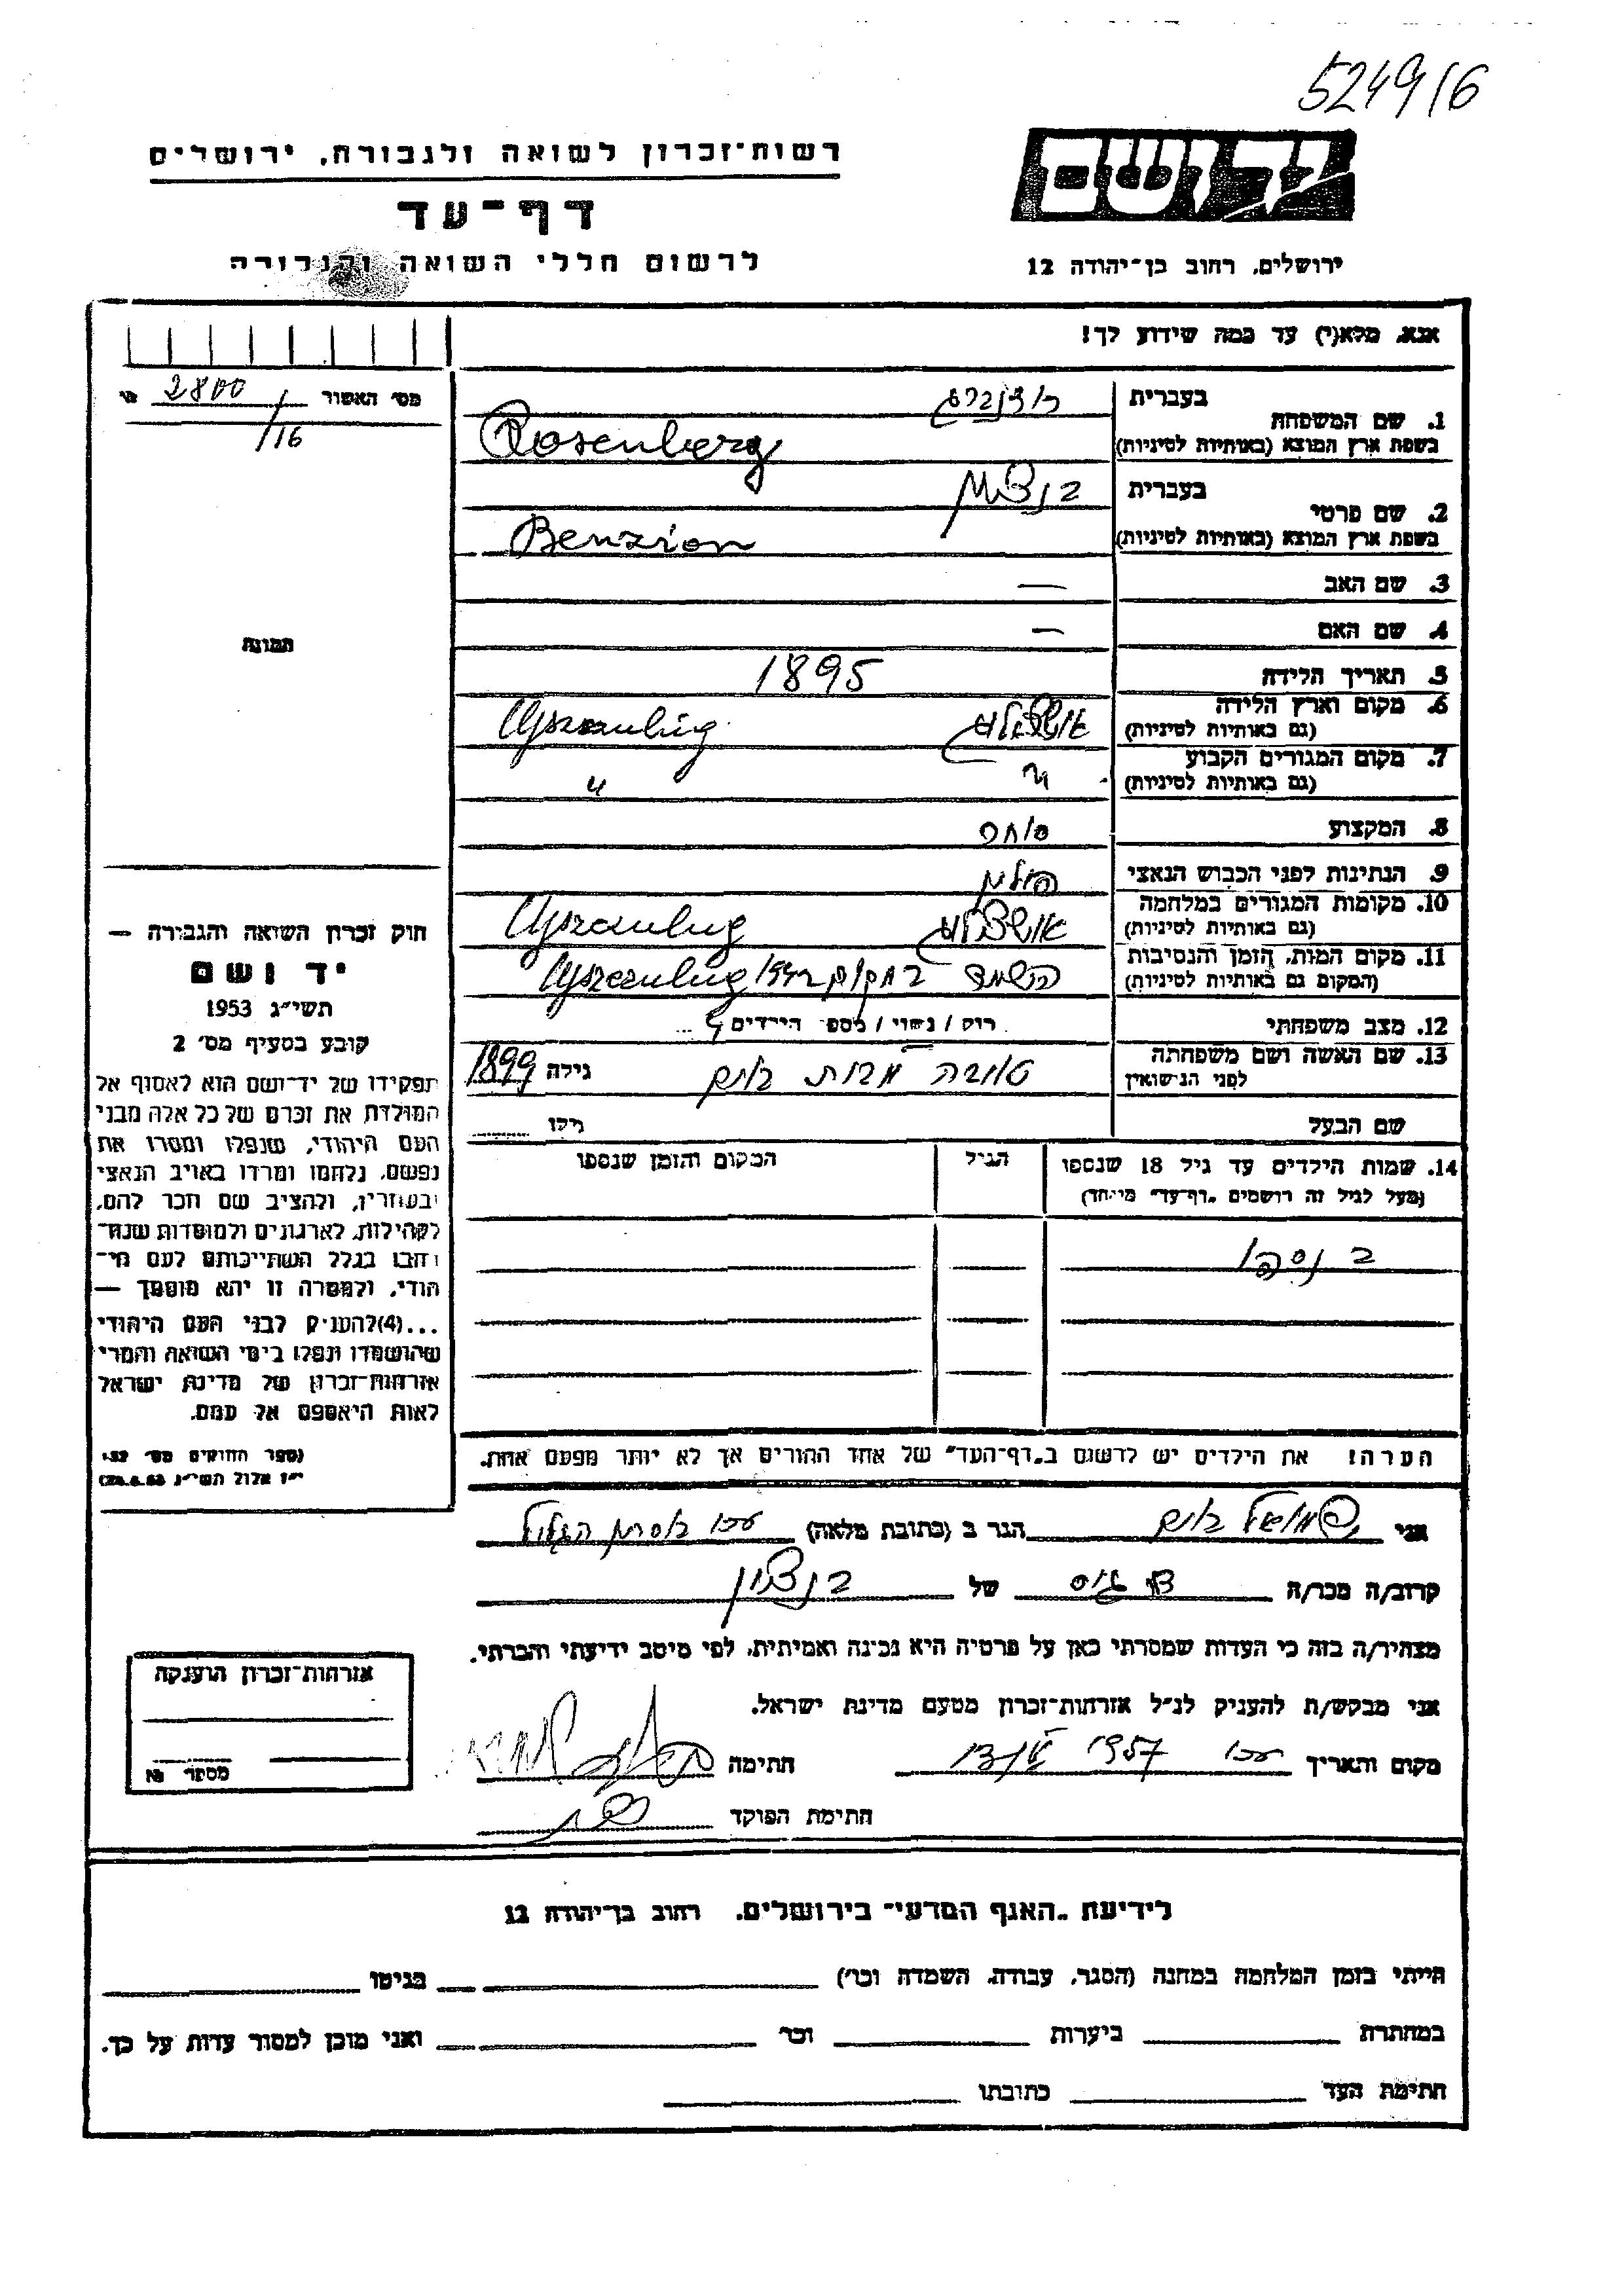 5249/6
יד ושם
רשות־זכרון לשואה ולגבורה, ירושלים
דף־עד
לרשום חללי השואה והגבורה
ירושלים, רחוב בן־יהודה 12
אנא, מלא(י) עד כמה שידוע לך!
מס׳ האשור 2800/16
תמונה
1. שם המשפחה בעברית רוזנברג
בשפת ארץ המוצא (באותיות לטיניות) Rosenberg
2. שם פרטי בעברית בנציון
בשפת ארץ המוצא (באותיות לטיניות) Benzion
3. שם האב —
4. שם האם —
5. תאריך הלידה 1895
6. מקום וארץ הלידה
(גם באותיות לטיניות)
7. מקום המגורים הקבוע
(גם באותיות לטיניות) "
8. המקצוע סוחר
9. הנתינות לפני הכבוש הנאצי פולין
10. מקומות המגורים במלחמה
(גם באותיות לטיניות)
11. מקום המות, הזמן והנסיבות
(המקום גם באותיות לטיניות) במקום
12. מצב משפחתי רוק / נשוי / מספר הילדים
13. שם האשה ושם משפחתה
לפני הנישואין טובה מבית בוים גילה 1899
שם הבעל גילו
14. שמות הילדים עד גיל 18 שנספו הגיל המקום והזמן שנספו
(מעל לגיל זה רושמים „דף־עד" מיוחד)
2 נספו
הערה! את הילדים יש לרשום ב„דף־העד" של אחד ההורים אך לא יותר מפעם אחת.
חוק זכרון השואה והגבורה —
יד ושם
תשי״ג 1953
קובע בסעיף מס׳ 2
תפקידו של יד־ושם הוא לאסוף אל
המולדת את זכרם של כל אלה מבני
העם היהודי, שנפלו ומסרו את
נפשם, נלחמו ומרדו באויב הנאצי
ובעוזריו, ולהציב שם וזכר להם,
לקהילות, לארגונים ולמוסדות שנח־
רבו בגלל השתייכותם לעם הי־
הודי, ולמטרה זו יהא מוסמך —
...(4)להעניק לבני העם היהודי
שהושמדו ונפלו בימי השואה והמרי
אזרחות־זכרון של מדינת ישראל
לאות היאספם אל עמם.
(ספר החוקים מס׳ 132
י״ז אלול תשי״ג 28.8.53)
אני שמואל בוים הגר ב (כתובת מלאה) עכו
קרוב/ה מכר/ה גיס של בנציון
מצהיר/ה בזה כי העדות שמסרתי כאן על פרטיה היא נכונה ואמיתית, לפי מיטב ידיעתי והכרתי.
אני מבקש/ת להעניק לנ״ל אזרחות־זכרון מטעם מדינת ישראל.
מקום ותאריך עכו 1957 חתימה
חתימת הפוקד
אזרחות־זכרון הוענקה
מספר №
לידיעת „האגף המדעי" בירושלים, רחוב בן־יהודה 12
הייתי בזמן המלחמה במחנה (הסגר, עבודה, השמדה וכו׳) בגיטו
במחתרת ביערות וכו׳ ואני מוכן למסור עדות על כך.
חתימת העד כתובתו